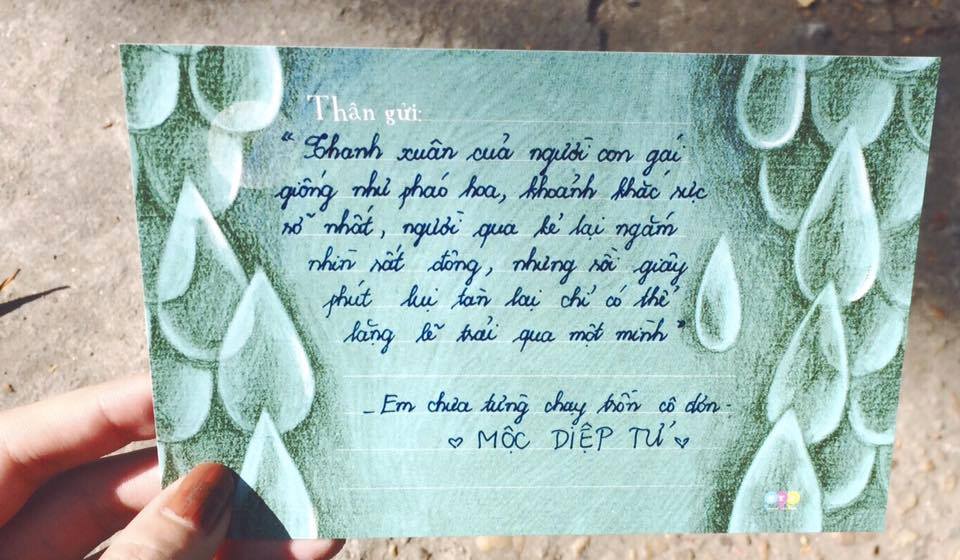 Thân gửi:
"Thanh xuân của người con gái
giống như pháo hoa, khoảnh khắc rực
rỡ nhất, người qua kẻ lại ngắm
nhìn rất đông, nhưng rồi giây
phút lụi tàn lại chỉ có thể
lặng lẽ trải qua một mình"
- Em chưa từng chạy trốn cô đơn -
♡ MỘC DIỆP TỬ ♡